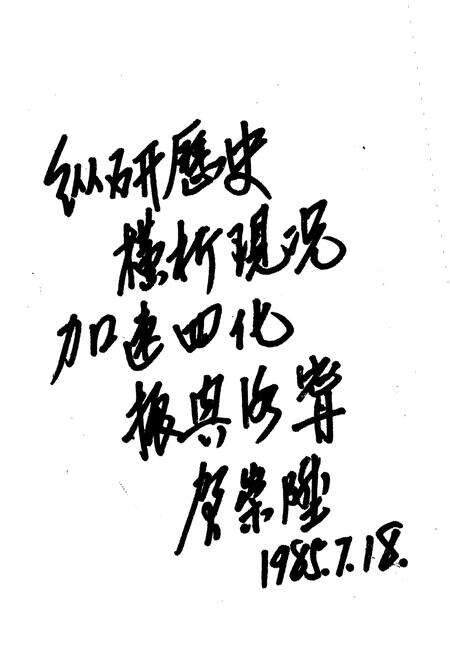 纵研歷史
横析現况
加速四化
振兴洛寧
賀崇陞
1985.7.18.